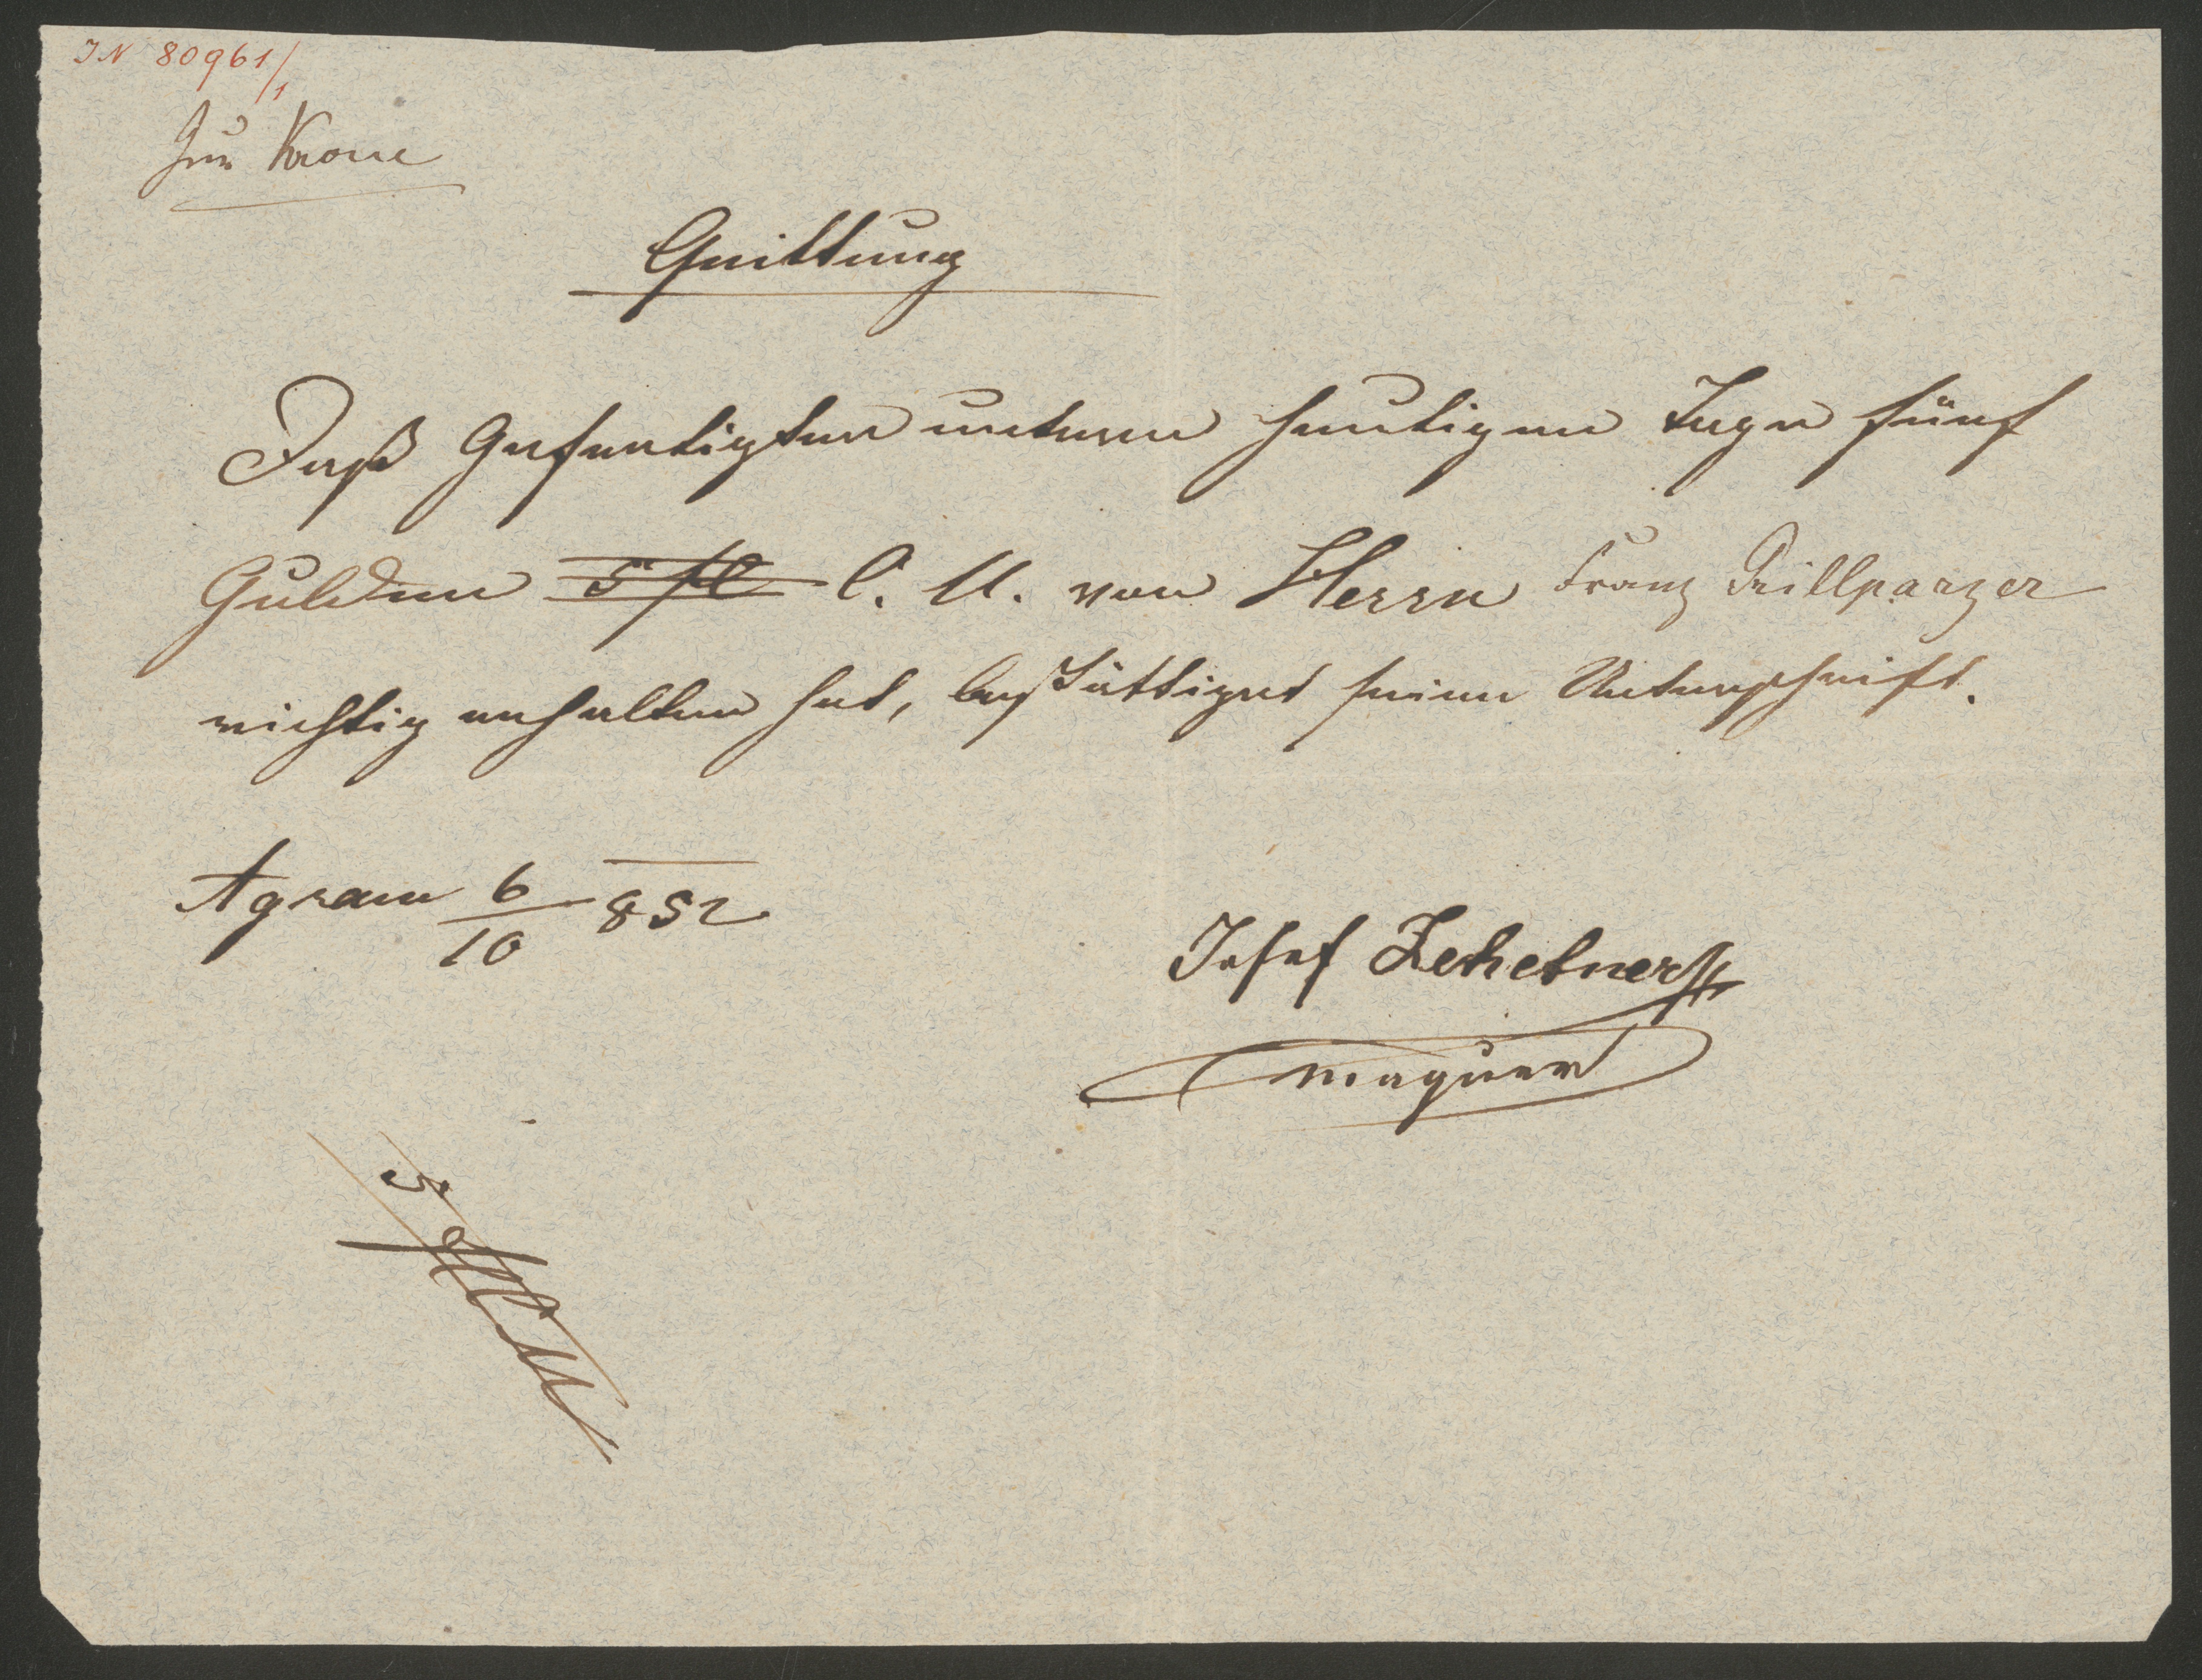 IN 80961/1
Zur Krone
Quittung
Daß Gefertigter unterm heutigen Tage fünf
Gulden 5 fl C. M. von Herrn Franz Grillparzer
richtig erhalten hat, bestättiget seine Unterschrift.
Agram 6/10 852
Josef Zehetner
5 fl CM